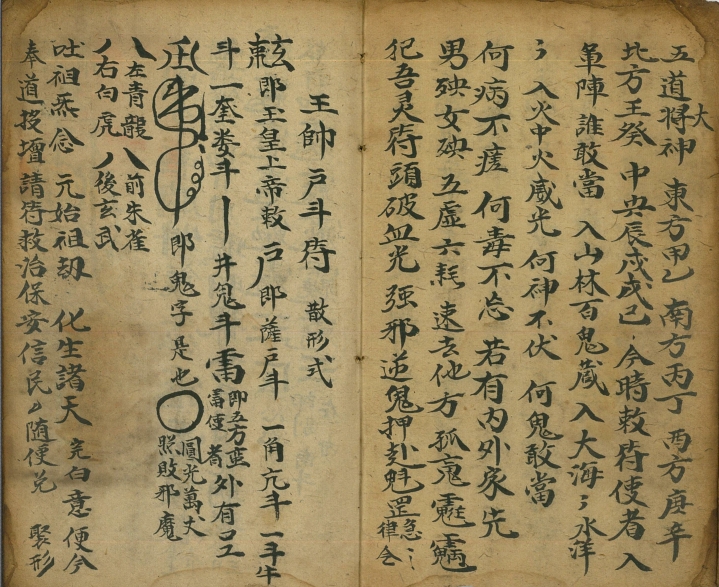 五道大將神 東方甲乙 南方丙丁 西方庚辛
北方王癸 中央辰戌戊己 今時敕符使者 入
軍陣誰敢當 入山林百鬼藏 入大海〻水洋
〻 入火中火威光 何神不伏 何鬼敢當
何病不瘥 何毒不忘 若有內外家先
男殃女殃 五虛六耗 速去他方 孤䰟
犯吾灵符頭破血光 强邪逆鬼押赴魁罡 急〻律令
王帥戶斗符 散形式
即玉皇上帝敕 戶 即薩戶斗 一角亢斗 一斗牛
斗 一奎娄斗 丨井鬼斗 即五方 外有
即鬼字是也 〇 圓光萬丈 照敗邪魔
乀左青龍 乀前朱雀
丿右白虎 丿後玄武
吐祖炁念 元始祖劫 化生諸天 完白意 便今
奉道投壇請符救治保安信民〻隨便兌 聚形